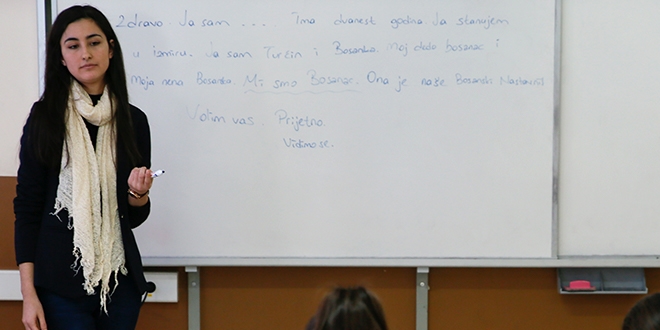 Zdravo. Ja sam .... Ima dvanest godina. Ja stanujem
u izmiru. Ja sam Turčin i Bosanka. Moj dado bosanac i
Moja nena Bosanka. Mi smo Bosanac. Ona je naše Bosanski Nastavnici
Volim vas. Prijetno.
Vidimo se.